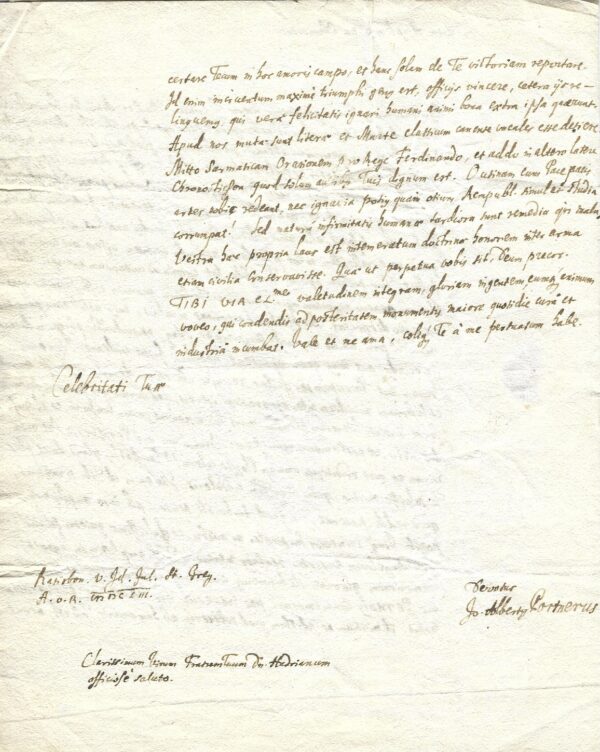 certare Tecum in hoc amoris campo, et hanc solam de Te victoriam reportare.
Id enim mi cuentum maximè triumphi genus est, officijs vincere, cætera ijs re-
linquens, qui veræ felicitatis ignari humani animi bona extra ipsa quærunt.
Apud nos mutæ sunt literæ et Marte classicum canente vocales esse desiere.
Mitto Sarmaticam Orationem pro Rege Ferdinando, et addo in altero latere
Chronosticon quod solum auribus Tuis dignum est. O utinam cum Pace partes
artes nobis redeant, nec ignavia potius quam otium, Rempubl. simulac studia
corrumpat! Sed naturâ infirmitatis humanæ tardiora sunt remedia quam mala,
Vestra hæc propria laus est intemeratum doctrinæ honorem inter arma
etiam civilia conservavisse. Quæ ut perpetua vobis sit, Deum precor.
TIBI VIR Cl.mes valetudinem integram, gloriam ingentem, eumque animum
voveo, qui condendis ad posteritatem monumentis maiore quotidie curâ et
industriâ incumbas. Vale et me ama, colique Te à me persuasum habe.
Celebritati Tuæ
Ratisbon. v. Jd. Jul. St. Greg.
A. o. R.
Devotus
Jo. Albertus Portnerus
Clarissimum Virum Fratrem Tuum Dn. Hadrianum
officiosè saluto.